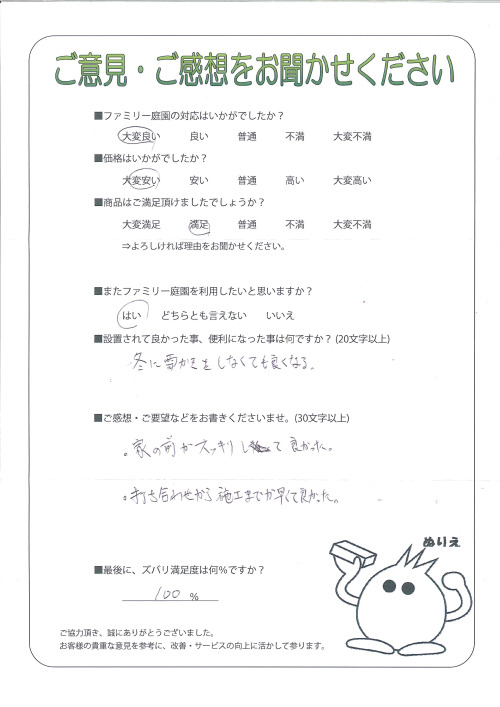 ご意見・ご感想をお聞かせください
■ファミリー庭園の対応はいかがでしたか？
大変良い 良い 普通 不満 大変不満
■価格はいかがでしたか？
大変安い 安い 普通 高い 大変高い
■商品はご満足頂けましたでしょうか？
大変満足 満足 普通 不満 大変不満
⇒よろしければ理由をお聞かせください。
■またファミリー庭園を利用したいと思いますか？
はい どちらとも言えない いいえ
■設置されて良かった事、便利になった事は何ですか？(20文字以上)
冬に雪かきをしなくても良くなる。
■ご感想・ご要望などをお書きくださいませ。(30文字以上)
。家の前がスッキリして良かった。
。打ち合わせから施工までが早くて良かった。
ぬりえ
■最後に、ズバリ満足度は何％ですか？
100 %
ご協力頂き、誠にありがとうございました。
お客様の貴重な意見を参考に、改善・サービスの向上に活かして参ります。